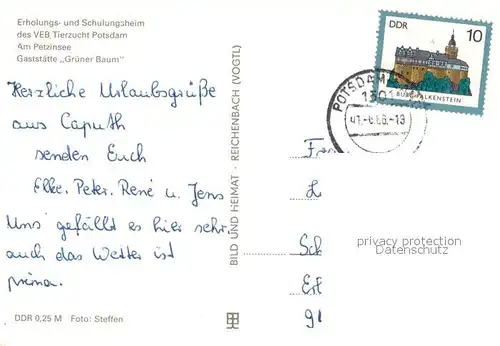 Erholungs- und Schulungsheim
des VEB Tierzucht Potsdam
Am Petzinsee
Gaststätte „Grüner Baum"
Herzliche Urlaubsgrüße
aus Caputh
senden Euch
Elke, Peter, René u. Jens
Uns gefällt es hier sehr,
auch das Wetter ist
prima.
DDR 0,25 M Foto: Steffen
BILD UND HEIMAT · REICHENBACH (VOGTL)
DDR
10
BURG FALKENSTEIN
POTSDAM
Sch
91
privacy protection
Datenschutz